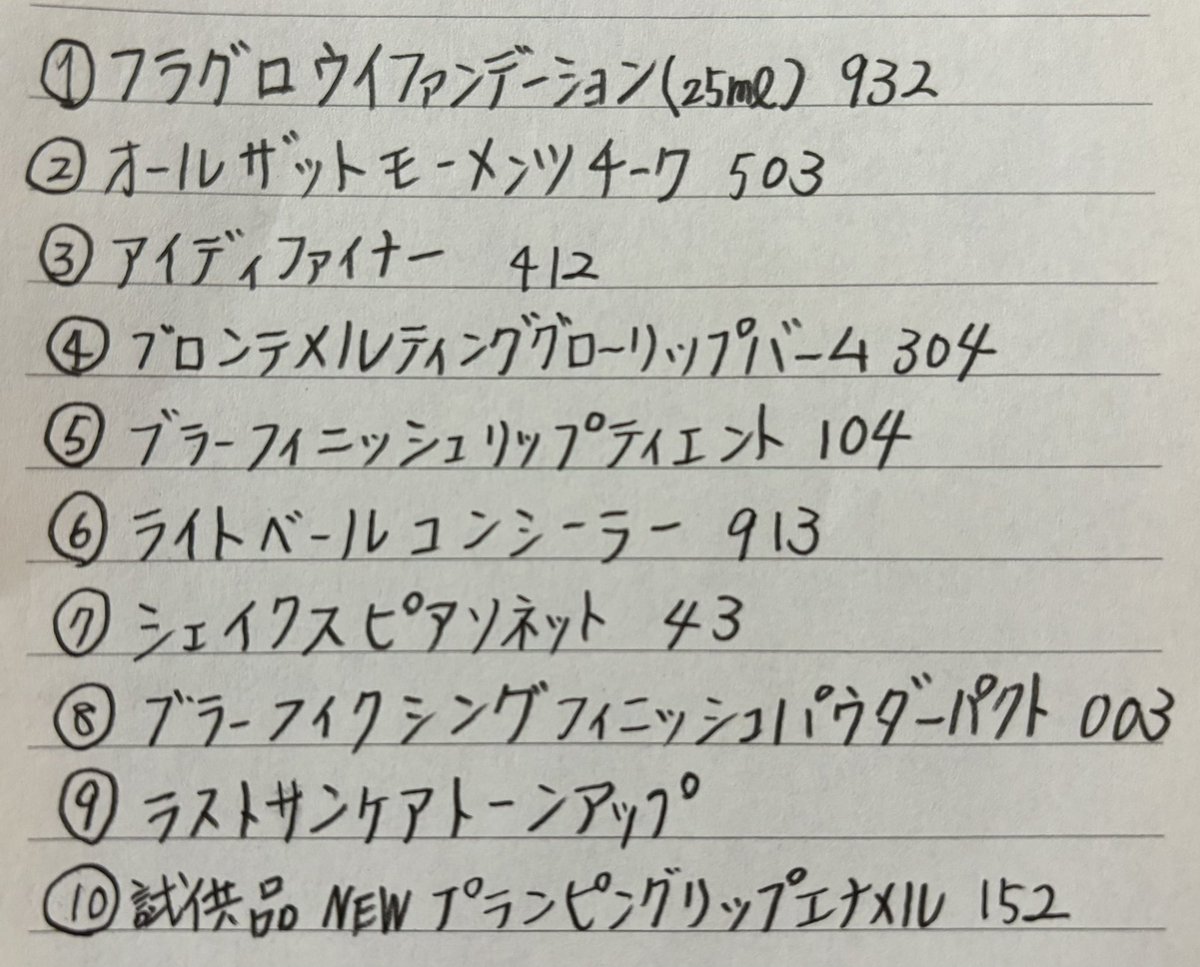 ① フラグロウイファンデーション(25ml) 932
② オールザットモーメンツチーク 503
③ アイディファイナー 412
④ ブロンテメルティンググローリップバーム 304
⑤ ブラーフィニッシュリップティエント 104
⑥ ライトベールコンシーラー 913
⑦ シェイクスピアソネット 43
⑧ ブラーフイクシングフィニッシュパウダーパクト 003
⑨ ラストサンケアトーンアップ
⑩ 試供品 NEW プランピングリップエナメル 152